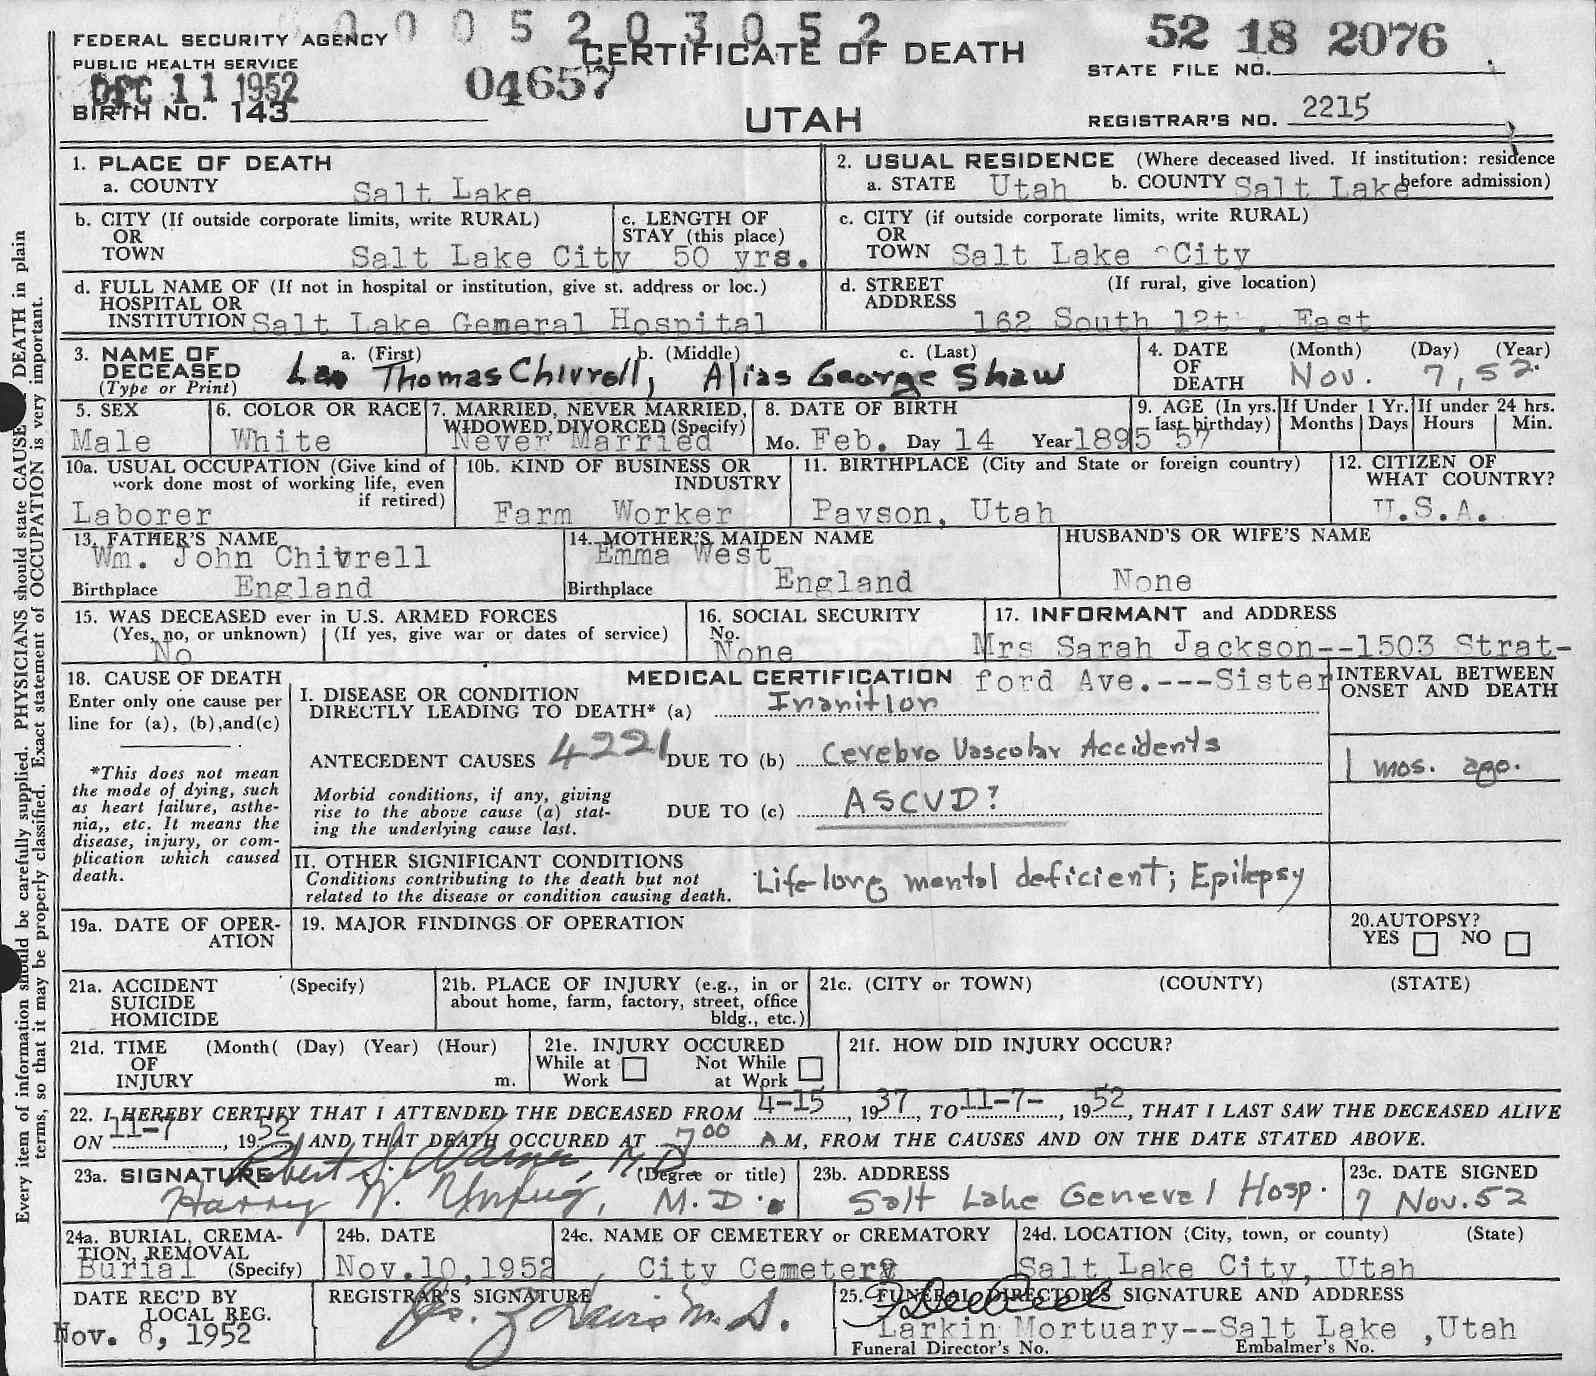 0 0 0 5 2 0 3 0 5 2
52 18 2076
FEDERAL SECURITY AGENCY
PUBLIC HEALTH SERVICE
CERTIFICATE OF DEATH
STATE FILE NO.
DEC 11 1952
04657
BIRTH NO. 143
UTAH
REGISTRAR'S NO. 2215
1. PLACE OF DEATH
a. COUNTY Salt Lake
2. USUAL RESIDENCE (Where deceased lived. If institution: residence before admission)
a. STATE Utah b. COUNTY Salt Lake
b. CITY (If outside corporate limits, write RURAL)
OR
TOWN Salt Lake City
c. LENGTH OF
STAY (this place)
50 yrs.
c. CITY (if outside corporate limits, write RURAL)
OR
TOWN Salt Lake City
d. FULL NAME OF (If not in hospital or institution, give st. address or loc.)
HOSPITAL OR
INSTITUTION Salt Lake General Hospital
d. STREET (If rural, give location)
ADDRESS
162 South 12th. East
3. NAME OF a. (First) b. (Middle) c. (Last)
DECEASED
(Type or Print)
Leo Thomas Chivrell, Alias George Shaw
4. DATE (Month) (Day) (Year)
OF
DEATH Nov. 7, 52.
5. SEX
Male
6. COLOR OR RACE
White
7. MARRIED, NEVER MARRIED,
WIDOWED, DIVORCED (Specify)
Never Married
8. DATE OF BIRTH
Mo. Feb. Day 14 Year 1895
9. AGE (In yrs.
last birthday)
57
If Under 1 Yr.
Months Days
If under 24 hrs.
Hours Min.
10a. USUAL OCCUPATION (Give kind of
work done most of working life, even
if retired)
Laborer
10b. KIND OF BUSINESS OR
INDUSTRY
Farm Worker
11. BIRTHPLACE (City and State or foreign country)
Payson, Utah
12. CITIZEN OF
WHAT COUNTRY?
U.S.A.
13. FATHER'S NAME
Wm. John Chivrell
Birthplace England
14. MOTHER'S MAIDEN NAME
Emma West
Birthplace England
HUSBAND'S OR WIFE'S NAME
None
15. WAS DECEASED ever in U.S. ARMED FORCES
(Yes, no, or unknown) (If yes, give war or dates of service)
No
16. SOCIAL SECURITY
No.
None
17. INFORMANT and ADDRESS
Mrs Sarah Jackson--1503 Strat-
ford Ave.---Sister
18. CAUSE OF DEATH
Enter only one cause per
line for (a), (b),and(c)
*This does not mean
the mode of dying, such
as heart failure, asthe-
nia,, etc. It means the
disease, injury, or com-
plication which caused
death.
MEDICAL CERTIFICATION
INTERVAL BETWEEN
ONSET AND DEATH
I. DISEASE OR CONDITION
DIRECTLY LEADING TO DEATH* (a) Inanition
ANTECEDENT CAUSES 4221 DUE TO (b) Cerebro Vascolar Accidents
1 mos. ago.
Morbid conditions, if any, giving
rise to the above cause (a) stat-
ing the underlying cause last.
DUE TO (c) ASCVD?
II. OTHER SIGNIFICANT CONDITIONS
Conditions contributing to the death but not
related to the disease or condition causing death.
Life-long mental deficient; Epilepsy
19a. DATE OF OPER-
ATION
19. MAJOR FINDINGS OF OPERATION
20. AUTOPSY?
YES NO
21a. ACCIDENT (Specify)
SUICIDE
HOMICIDE
21b. PLACE OF INJURY (e.g., in or
about home, farm, factory, street, office
bldg., etc.)
21c. (CITY or TOWN) (COUNTY) (STATE)
21d. TIME (Month( (Day) (Year) (Hour)
OF
INJURY m.
21e. INJURY OCCURED
While at Work
Not While at Work
21f. HOW DID INJURY OCCUR?
22. I HEREBY CERTIFY THAT I ATTENDED THE DECEASED FROM 4-15, 1937, TO 11-7-, 1952, THAT I LAST SAW THE DECEASED ALIVE
ON 11-7, 1952, AND THAT DEATH OCCURED AT 7 00 A M, FROM THE CAUSES AND ON THE DATE STATED ABOVE.
23a. SIGNATURE (Degree or title)
Robert S. Warner, M.D.
Harry W. M.D.
23b. ADDRESS
Salt Lake General Hosp.
23c. DATE SIGNED
7 Nov. 52
24a. BURIAL, CREMA-
TION, REMOVAL
(Specify)
Burial
24b. DATE
Nov. 10, 1952
24c. NAME OF CEMETERY or CREMATORY
City Cemetery
24d. LOCATION (City, town, or county) (State)
Salt Lake City, Utah
DATE REC'D BY
LOCAL REG.
Nov. 8, 1952
REGISTRAR'S SIGNATURE
25. FUNERAL DIRECTOR'S SIGNATURE AND ADDRESS
Larkin Mortuary--Salt Lake ,Utah
Funeral Director's No. Embalmer's No.
Every item of information should be carefully supplied. PHYSICIANS should state CAUSE DEATH in plain
terms, so that it may be properly classified. Exact statement of OCCUPATION is very important.